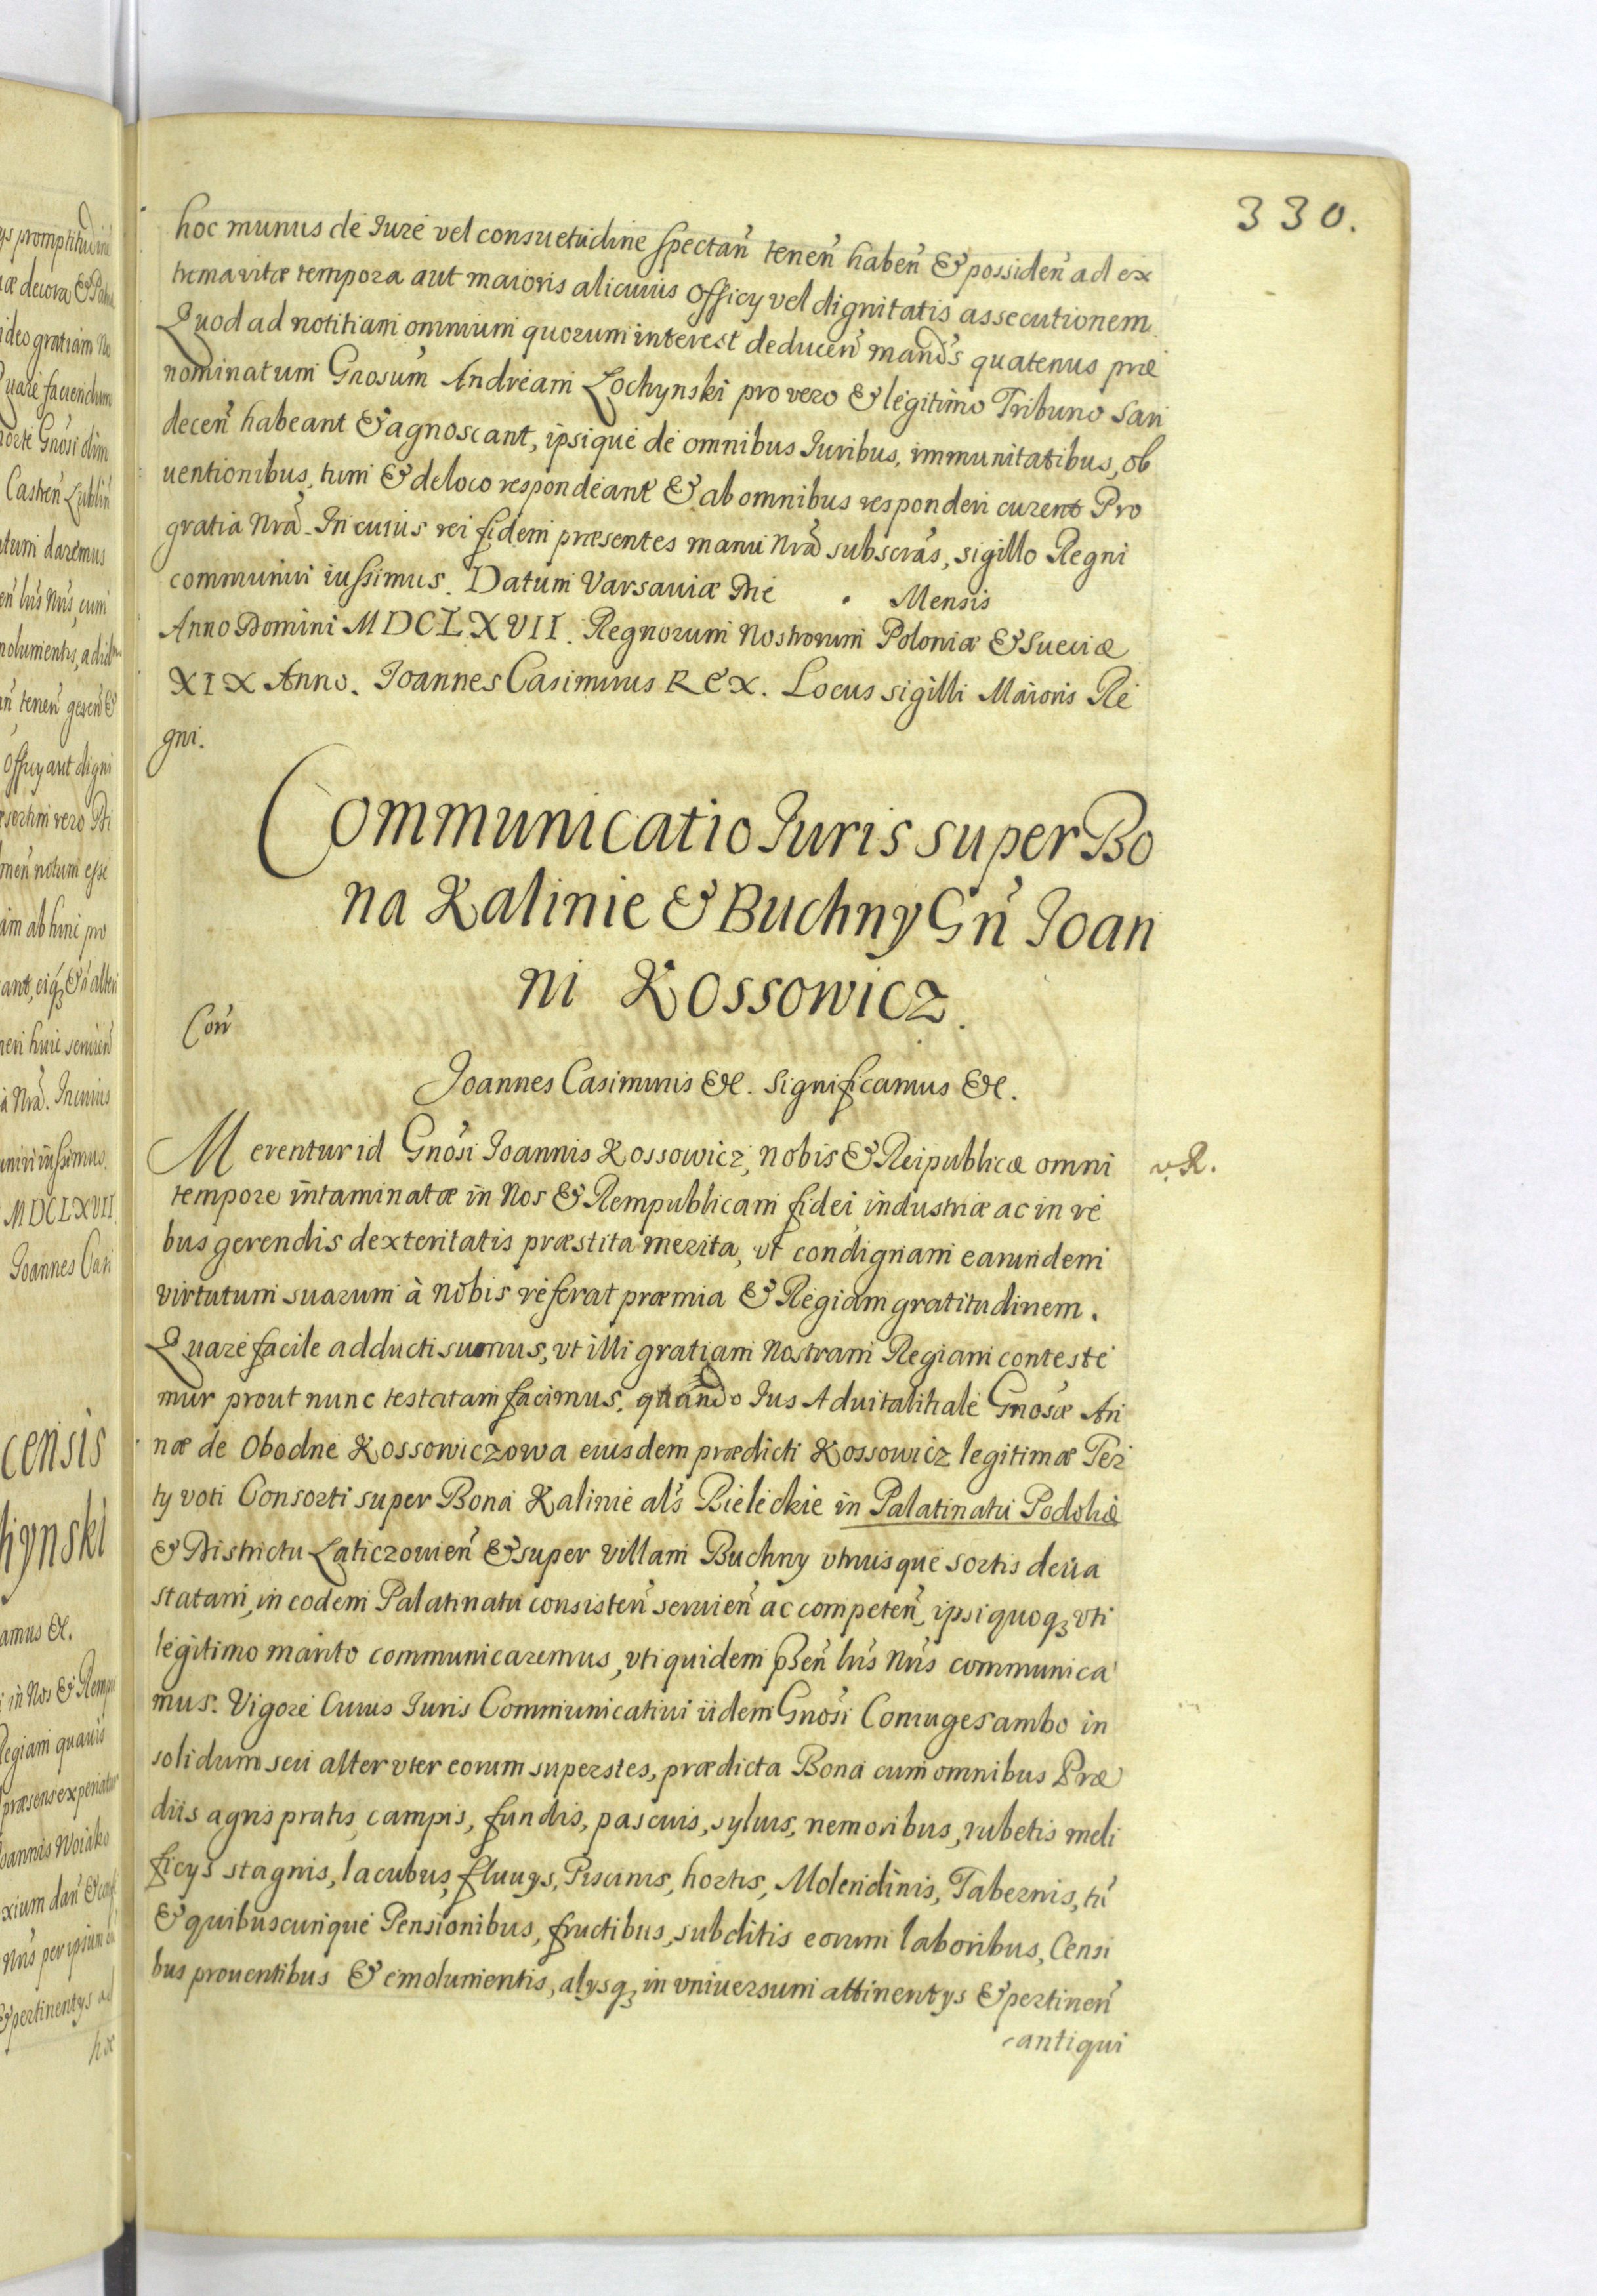 330.
hoc munus de Iure vel consuetudine spectan̄ tenen̄ haben̄ & possiden̄ ad ex
trema vitæ tempora aut maioris alicuius Officy vel dignitatis assecutionem.
Quod ad notitiam omnium quorum interest deducen̄ mands̄ quatenus præ
nominatum Gnosum̄ Andream Lochynski pro vero & legitimo Tribuno San
decen̄ habeant & agnoscant, ipsique de omnibus Iuribus, immunitatibus, ob
uentionibus, tum & de loco respondeant & ab omnibus responderi curent Pro
gratia Nrā. In cuius rei fidem præsentes manu Nrā subscrās, sigillo Regni
communiri iussimus. Datum Varsaviæ Die . Mensis
Anno Domini MDCLXVII. Regnorum Nostrorum Poloniæ & Sueciæ
XIX Anno. Ioannes Casimirus REX. Locus sigilli Maioris Re
gni.
Communicatio Iuris super Bo
na Kalinie & Buchny Gn̄ Ioan
ni Kossowicz.
Con̄
Ioannes Casimirus &c. Significamus &c.
Merentur id Gnosi Ioannis Kossowicz, nobis & Reipublicæ omni
v. R.
tempore intaminatæ in Nos & Rempublicam fidei industriæ ac in re
bus gerendis dexteritatis præstita merita, vt condignam earundem
virtutum suarum à nobis referat præmia & Regiam gratitudinem.
Quare facile adducti sumus, vt illi gratiam Nostram Regiam conteste
mur prout nunc testatam facimus. quando Ius Aduitalitiale Gnosæ An
næ de Obodne Kossowiczowa eiusdem prædicti Kossowicz legitimæ Ter
ty voti Consorti super Bona Kalinie als̄ Bieleckie in Palatinatu Podoliæ
& Districtu Laticzouien̄ & super villam Buchny vtriusque sortis deua
statam, in eodem Palatinatu consisten̄ seruien̄ ac competen̄, ipsi quoq₃ vti
legitimo marito communicaremus, vti quidem p̄sen̄ lrīs Nrīs communica
mus. Vigore Cuius Iuris Communicatiui iidem Gnosi Coniuges ambo in
solidum seu alter vter eorum superstes, prædicta Bona cum omnibus Præ
diis agris pratis, campis, fundis, pascuis, syluis, nemoribus, rubetis meli
ficys stagnis, lacubus, fluuys, Piscinis, hortis, Molendinis, Tabernis, tū
& quibuscunque Pensionibus, fructibus, subditis eorum laboribus, Censi
bus prouentibus & emolumentis, alysq₃ in vniuersum attinentys & pertinen̄
antiqui